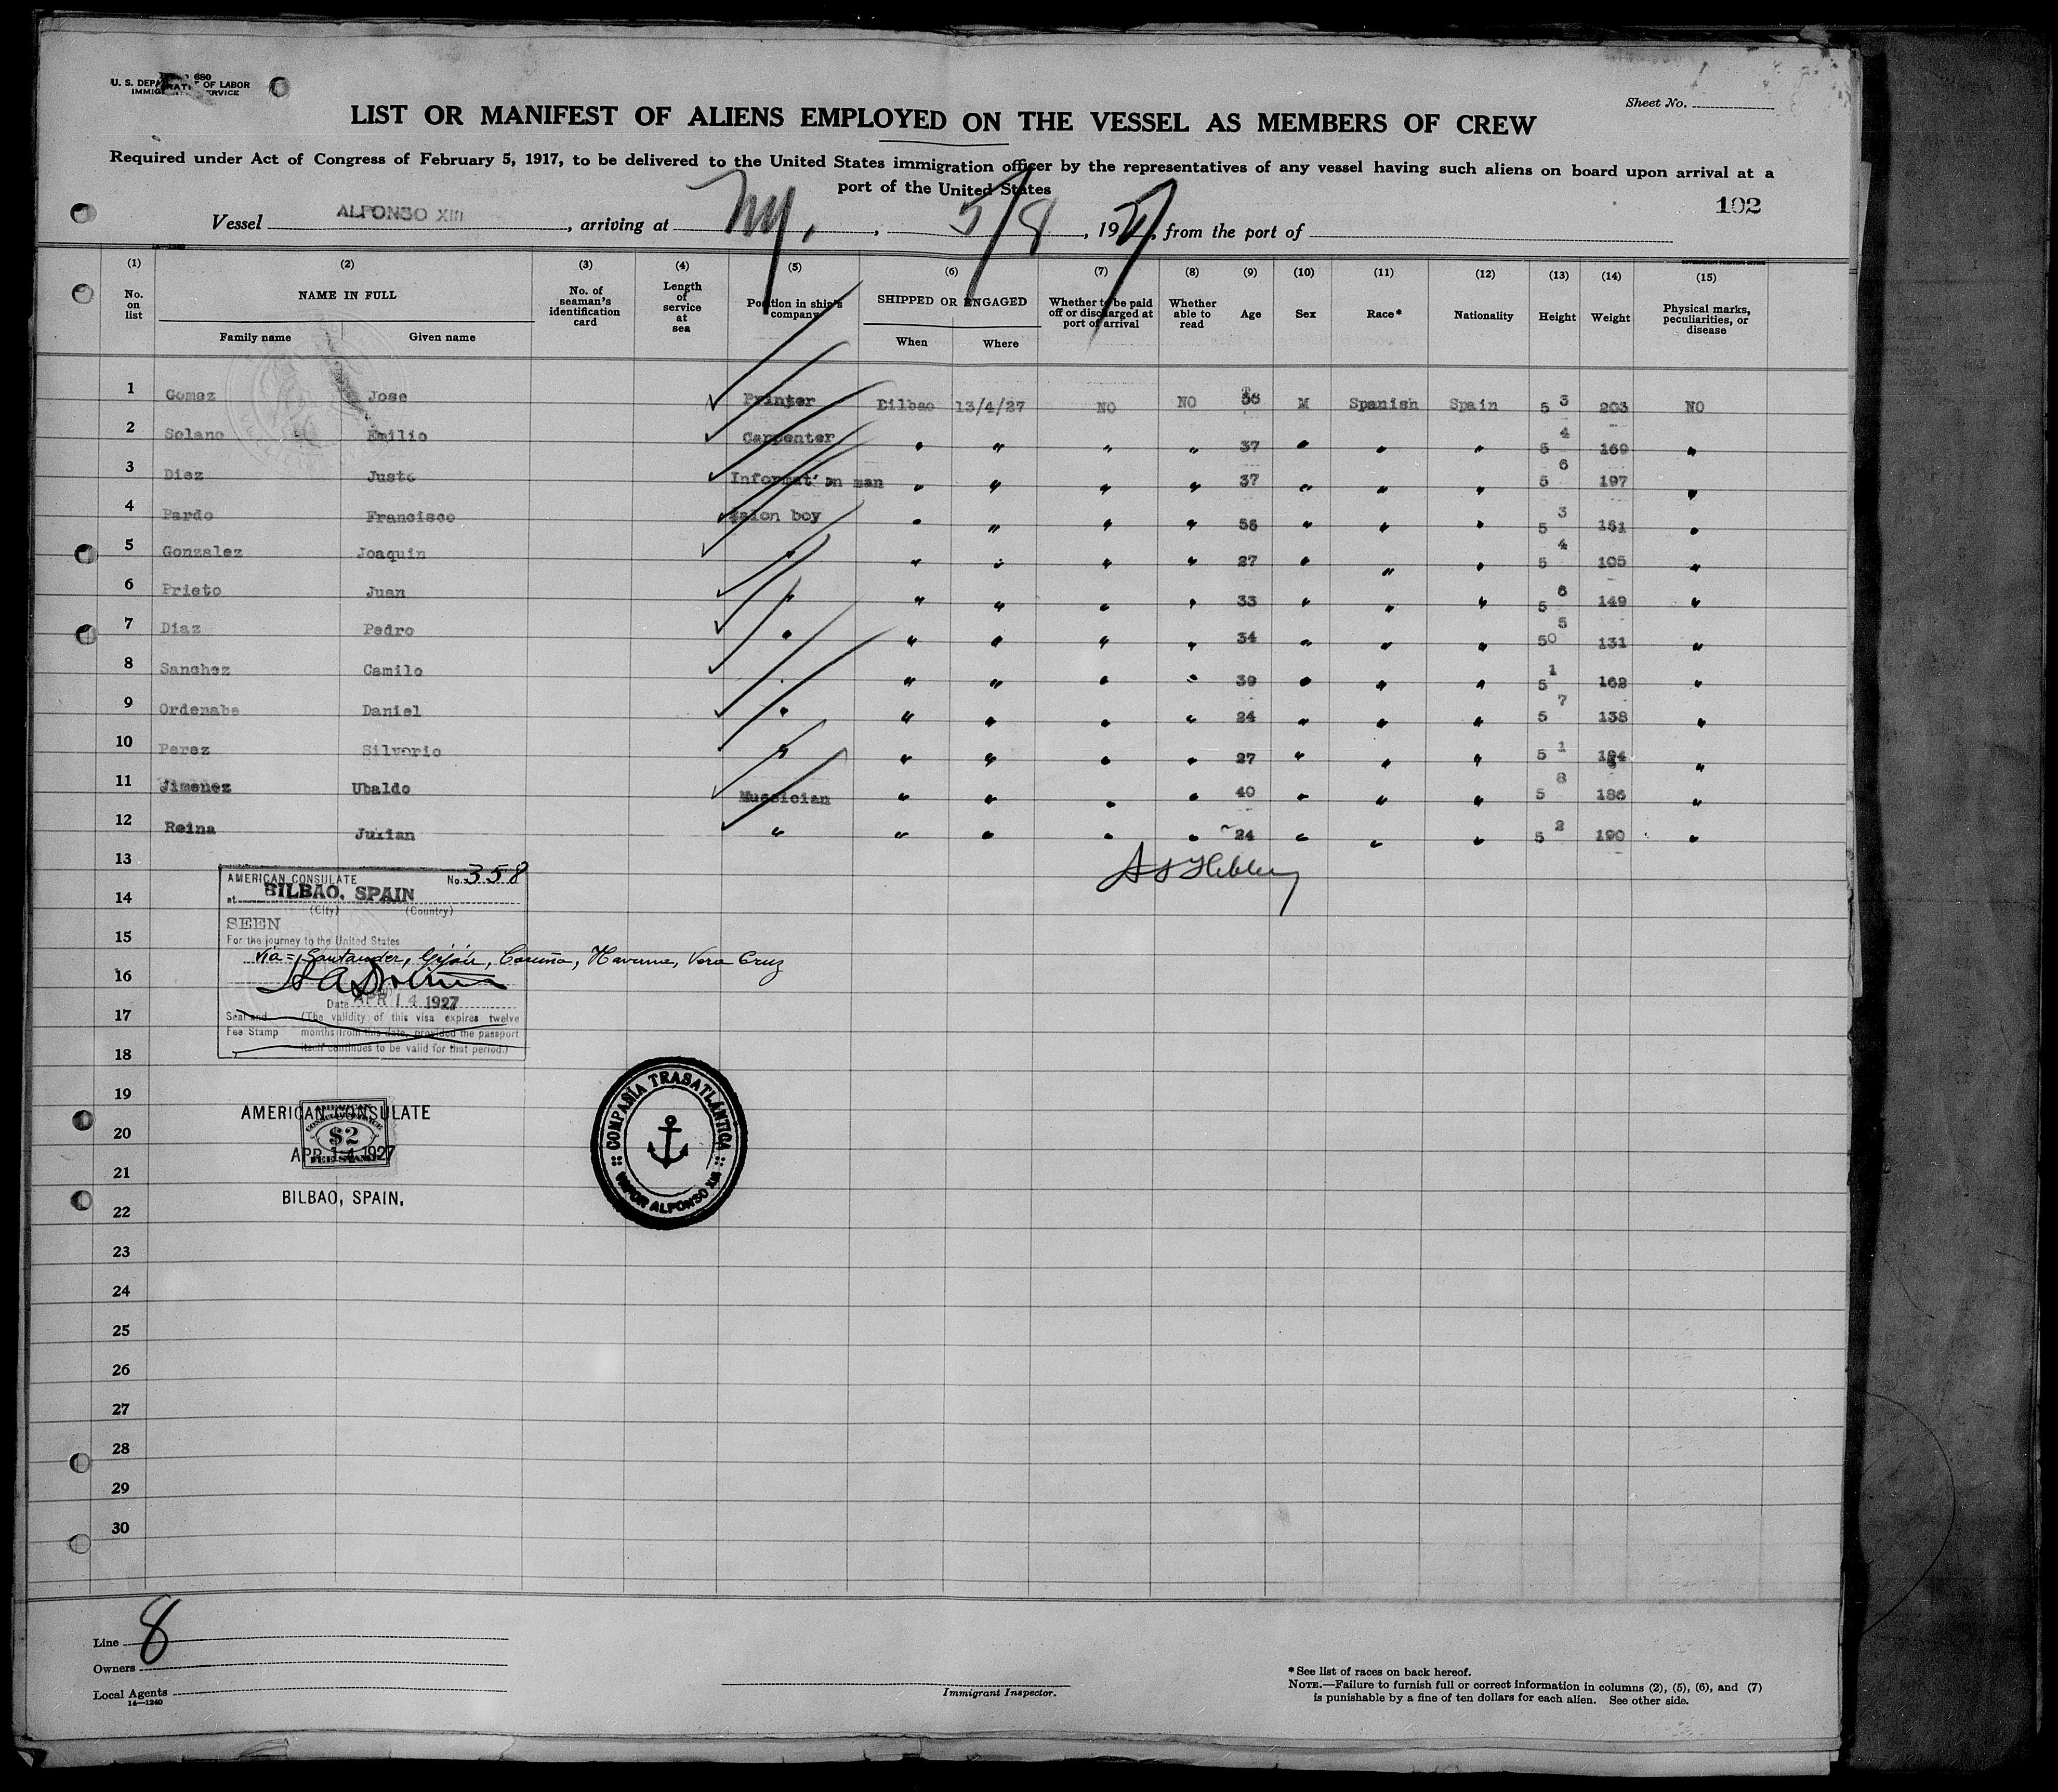 U. S. DEPARTMENT OF LABOR
IMMIGRATION SERVICE
Sheet No.
LIST OR MANIFEST OF ALIENS EMPLOYED ON THE VESSEL AS MEMBERS OF CREW
Required under Act of Congress of February 5, 1917, to be delivered to the United States immigration officer by the representatives of any vessel having such aliens on board upon arrival at a
port of the United States
102
Vessel ALFONSO XIII, arriving at NY, 5/8, 1927, from the port of
(1) (2) (3) (4) (5) (6) (7) (8) (9) (10) (11) (12) (13) (14) (15)
No. on list NAME IN FULL Family name Given name No. of seaman's identification card Length of service at sea Position in ship's company SHIPPED OR ENGAGED When Where Whether to be paid off or discharged at port of arrival Whether able to read Age Sex Race* Nationality Height Weight Physical marks, peculiarities, or disease
1 Gomez Jose Printer Bilbao 13/4/27 NO NO M Spanish Spain 5 3 203 NO
2 Solano Emilio Carpenter " " " " 37 " " " 5 4 169 "
3 Diez Justo Informat'on man " " " " 37 " " " 5 6 197 "
4 Pardo Francisco salon boy " " " " 56 " " " 5 3 151 "
5 Gonzalez Joaquin " " " " " 27 " " " 5 4 105 "
6 Prieto Juan " " " " " 33 " " " 5 6 149 "
7 Diaz Pedro " " " " " 34 " " " 50 5 131 "
8 Sanchez Camilo " " " " " 39 " " " 5 1 162 "
9 Ordenabe Daniel " " " " " 24 " " " 5 7 138 "
10 Perez Silverio " " " " " 27 " " " 5 1 "
11 Jimenez Ubaldo Mussician " " " " 40 " " " 5 8 186 "
12 Reina Julian " " " " " 24 " " " 5 2 190 "
13
AMERICAN CONSULATE No. 358
at BILBAO, SPAIN
(City) (Country)
14
SEEN
15
For the journey to the United States
via = Santander, Gijón, Coruña, Havana, Vera Cruz
16
Date APR 14 1927
17
Seal and Fee Stamp (The validity of this visa expires twelve
months from this date, provided the passport
itself continues to be valid for that period.)
18
19
AMERICAN CONSULATE
AMERICAN CONSULAR SERVICE
$2
FEE STAMP
20
APR 14 1927
21
BILBAO, SPAIN.
COMPAÑIA TRASATLÁNTICA
VAPOR ALFONSO XIII
22
23
24
25
26
27
28
29
30
Line 8
Owners
Local Agents
14—1240
Immigrant Inspector.
*See list of races on back hereof.
NOTE.—Failure to furnish full or correct information in columns (2), (5), (6), and (7)
is punishable by a fine of ten dollars for each alien. See other side.